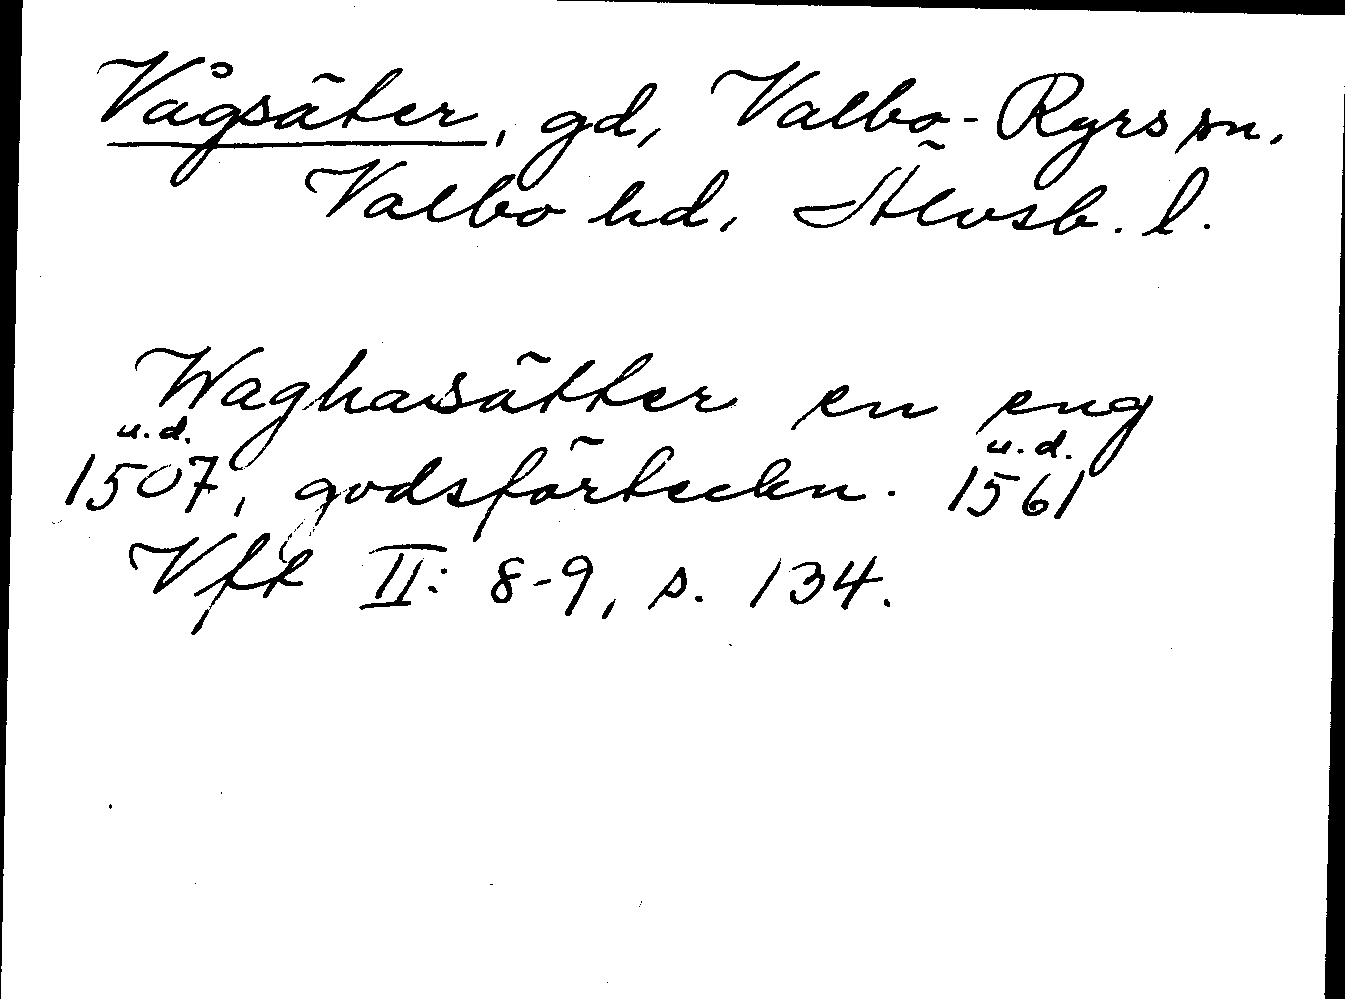 Vågsäter, gd, Valbo-Ryrs sn,
Valbo hd, Älvsb. l.
Waghasätter en eng
u.d. u.d.
1507, godsförteckn. 1561
Vft II: 8-9, s. 134.